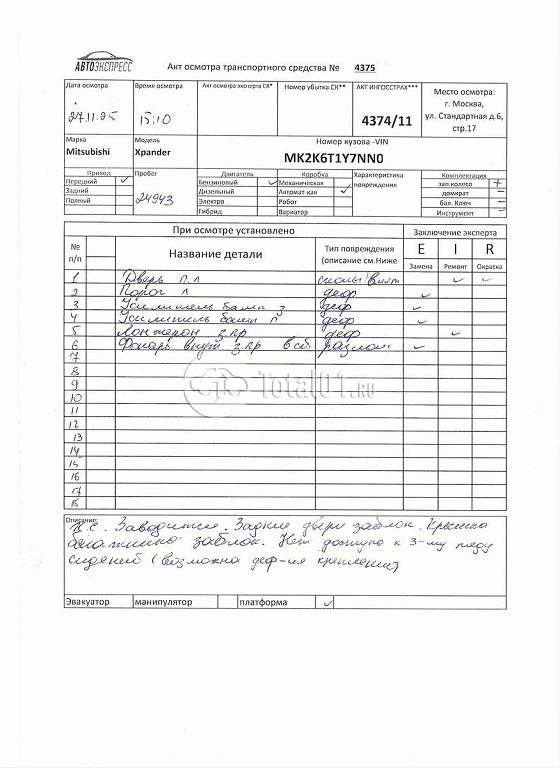 АВТОЭКСПРЕСС
Акт осмотра транспортного средства № 4375
Дата осмотра Время осмотра Акт осмотра эксперта СК* Номер убытка СК** АКТ ИНГОССТРАХ*** Место осмотра:
г. Москва,
ул. Стандартная д.6,
стр.17
27.11.25 15:10 4374/11
Марка Модель Номер кузова -VIN
Mitsubishi Xpander MK2K6T1Y7NN0
Привод Пробег Двигатель Коробка Характеристика повреждения Комплектация
Передний ✓ Бензиновый ✓ Механическая зап.колесо +
Задний 24943 Дизельный Автомат кая ✓ домкрат -
Полный Электро Робот бал. Ключ -
Гибрид Вариатор Инструмент ✓
При осмотре установлено Заключение эксперта
№ п/п Название детали Тип повреждения (описание см.Ниже E I R
Замена Ремонт Окраска
1 Дверь п.л сколы ✓ ✓
2 Порог л деф ✓
3 Усилитель бамп з деф ✓
4 Усилитель бамп п деф ✓
5 Лонжерон з.пр деф ✓
6 Фонарь внут з.пр в сб разлом ✓
7
8
9
10
11
12
13
14
15
16
17
18
Total01.ru
Описание: Заводится. Задние двери заблок. Крышка
багажника заблок. Нет доступа к 3-му ряду
сидений (возможна деф-ия крепления)
Эвакуатор манипулятор платформа ✓